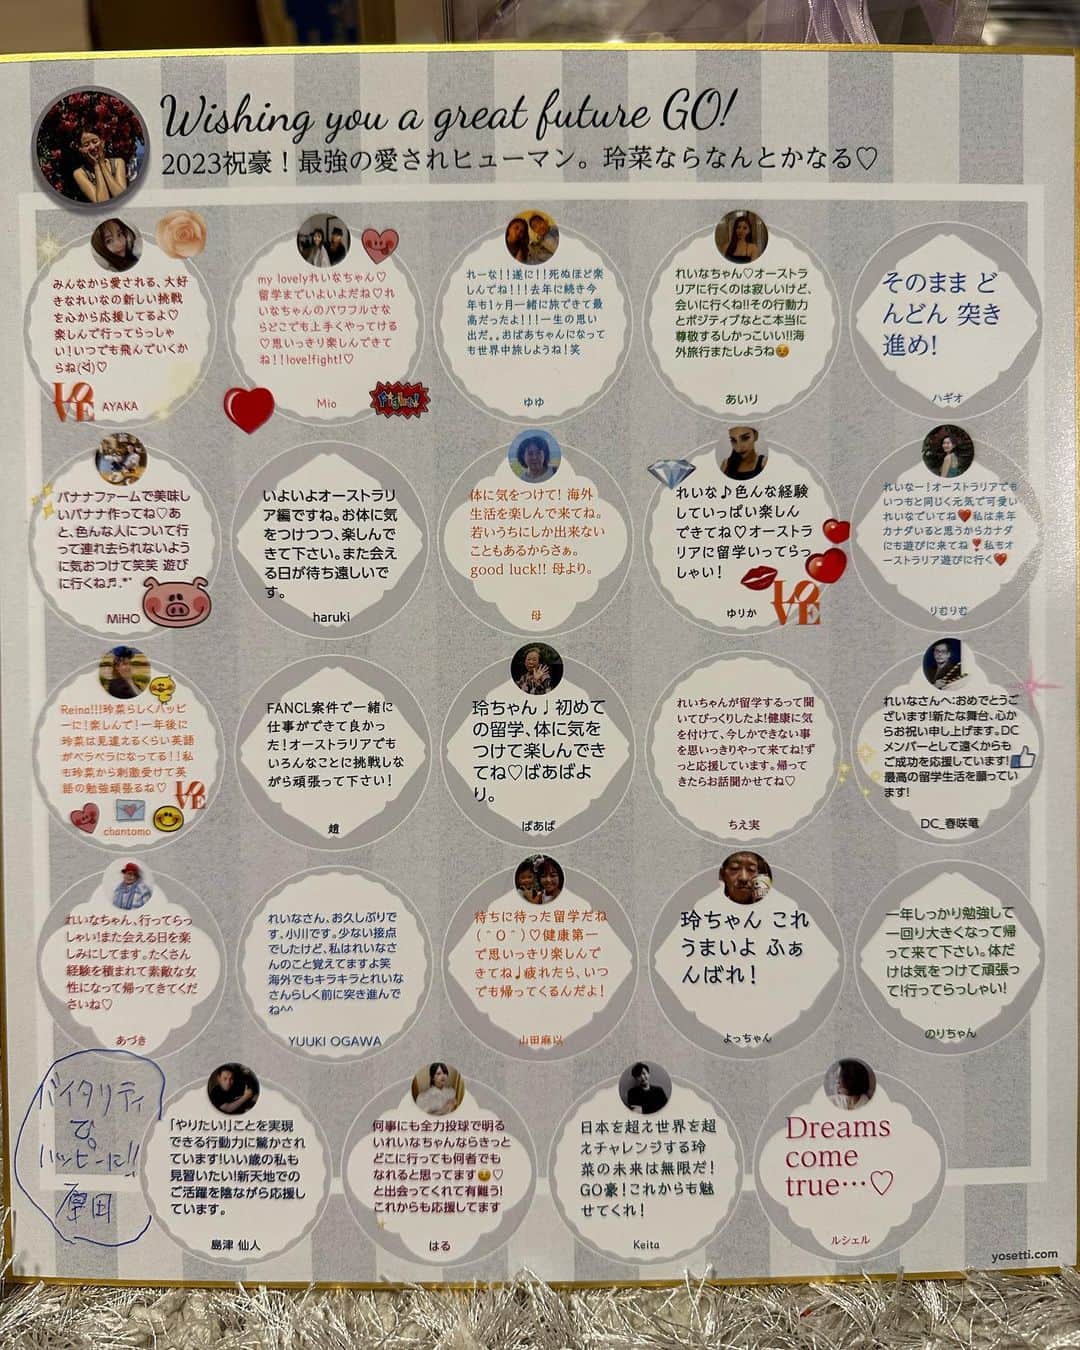 Wishing you a great future GO!
2023祝豪！最強の愛されヒューマン。玲菜ならなんとかなる♡
みんなから愛される、大好
きなれいなの新しい挑戦
を心から応援してるよ♡
楽しんで行ってらっしゃ
い！いつでも飛んでいくか
らね(ᐛ)♡
LOVE
AYAKA
my lovelyれいなちゃん♡
留学までいよいよだね♡れ
いなちゃんのパワフルさな
らどこでも上手くやってける
♡思いっきり楽しんできて
ね！！love!fight!♡
Mio
Fight!
れーな！！遂に！！死ぬほど楽
しんでね！！！去年に続き今
年も1ヶ月一緒に旅できて最
高だったよ！！！一生の思い
出だ。。おばあちゃんになって
も世界中旅しようね！笑
ゆゆ
れいなちゃん♡オーストラ
リアに行くのは寂しいけど、
会いに行くね!!その行動力
とポジティブなとこ本当に
尊敬するしかっこいい!!海
外旅行またしようね☺️
あいり
そのまま ど
んどん 突き
進め!
ハギオ
バナナファームで美味し
いバナナ作ってね♡あ
と、色んな人について行
って連れ去られないよう
に気おつけて笑笑 遊び
に行くね♬.*ﾟ
MiHO
いよいよオーストラリ
ア編ですね。お体に気
をつけつつ、楽しんで
きて下さい。また会え
る日が待ち遠しいで
す。
haruki
体に気をつけて! 海外
生活を楽しんで来てね。
若いうちにしか出来ない
こともあるからさぁ。
good luck!! 母より。
母
れいな♪色んな経験
していっぱい楽しん
できてね♡オーストラ
リアに留学いってらっ
しゃい！
ゆりか
LOVE
れいなー！オーストラリアでも
いつもと同じく元気で可愛い
れいなでいてね❤️私は来年
カナダいると思うからカナダ
にも遊びに来てね❣️私もオ
ーストラリア遊びに行く❤️
りむりむ
Reina!!!玲菜らしくハッピ
ーに！楽しんで！一年後に
玲菜は見違えるくらい英語
がペラペラになってる！！私
も玲菜から刺激受けて英
語の勉強頑張るね♡
LOVE
chantomo
FANCL案件で一緒に
仕事ができて良かっ
た！オーストラリアでも
いろんなことに挑戦しな
がら頑張って下さい！
趙
玲ちゃん♩初めて
の留学、体に気を
つけて楽しんでき
てね♡ばあばよ
り。
ばあば
れいちゃんが留学するって聞
いてびっくりしたよ!健康に気
を付けて、今しかできない事
を思いっきりやって来てね!ず
っと応援しています。帰って
きたらお話聞かせてね♡
ちえ実
れいなさんへ:おめでとうご
ざいます!新たな舞台、心か
らお祝い申し上げます。DC
メンバーとして遠くからも
ご成功を応援しています!
最高の留学生活を願ってい
ます!
DC_春咲竜
れいなちゃん、行ってらっ
しゃい!また会える日を楽
しみにしてます。たくさん
経験を積まれて素敵な女
性になって帰ってきてくだ
さいね♡
あづき
れいなさん、お久しぶりで
す、小川です。少ない接点
でしたけど、私はれいなさ
んのこと覚えてますよ笑
海外でもキラキラとれいな
さんらしく前に突き進んで
ね^^
YUUKI OGAWA
待ちに待った留学だね
(＾O＾)♡健康第一
で思いっきり楽しんで
きてね♩疲れたら、いつ
でも帰ってくるんだよ！
山田麻以
玲ちゃん これ
うまいよ ふぁ
んばれ！
よっちゃん
一年しっかり勉強して
一回り大きくなって帰
って来て下さい。体だ
けは気をつけて頑張っ
て!行ってらっしゃい!
のりちゃん
バイタリティ
で。
ハッピーに!!
原田
「やりたい!」ことを実現
できる行動力に驚かされ
ています!いい歳の私も
見習いたい!新天地での
ご活躍を陰ながら応援し
ています。
島津 仙人
何事にも全力投球で明る
いれいなちゃんならきっと
どこに行っても何者でも
なれると思ってます☺️♡
と出会ってくれて有難う!
これからも応援してます
はる
日本を超え世界を超
えチャレンジする玲
菜の未来は無限だ！
GO豪！これからも魅
せてくれ！
Keita
Dreams
come
true…♡
ルシェル
yosetti.com